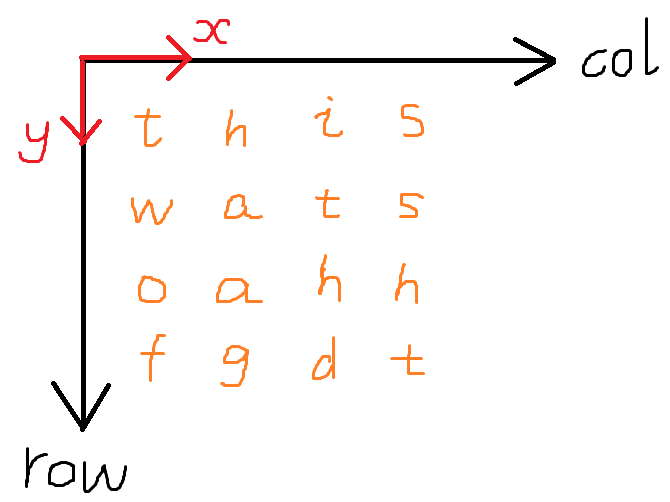 x
col
y
t h i s
w a t s
o a h h
f g d t
row